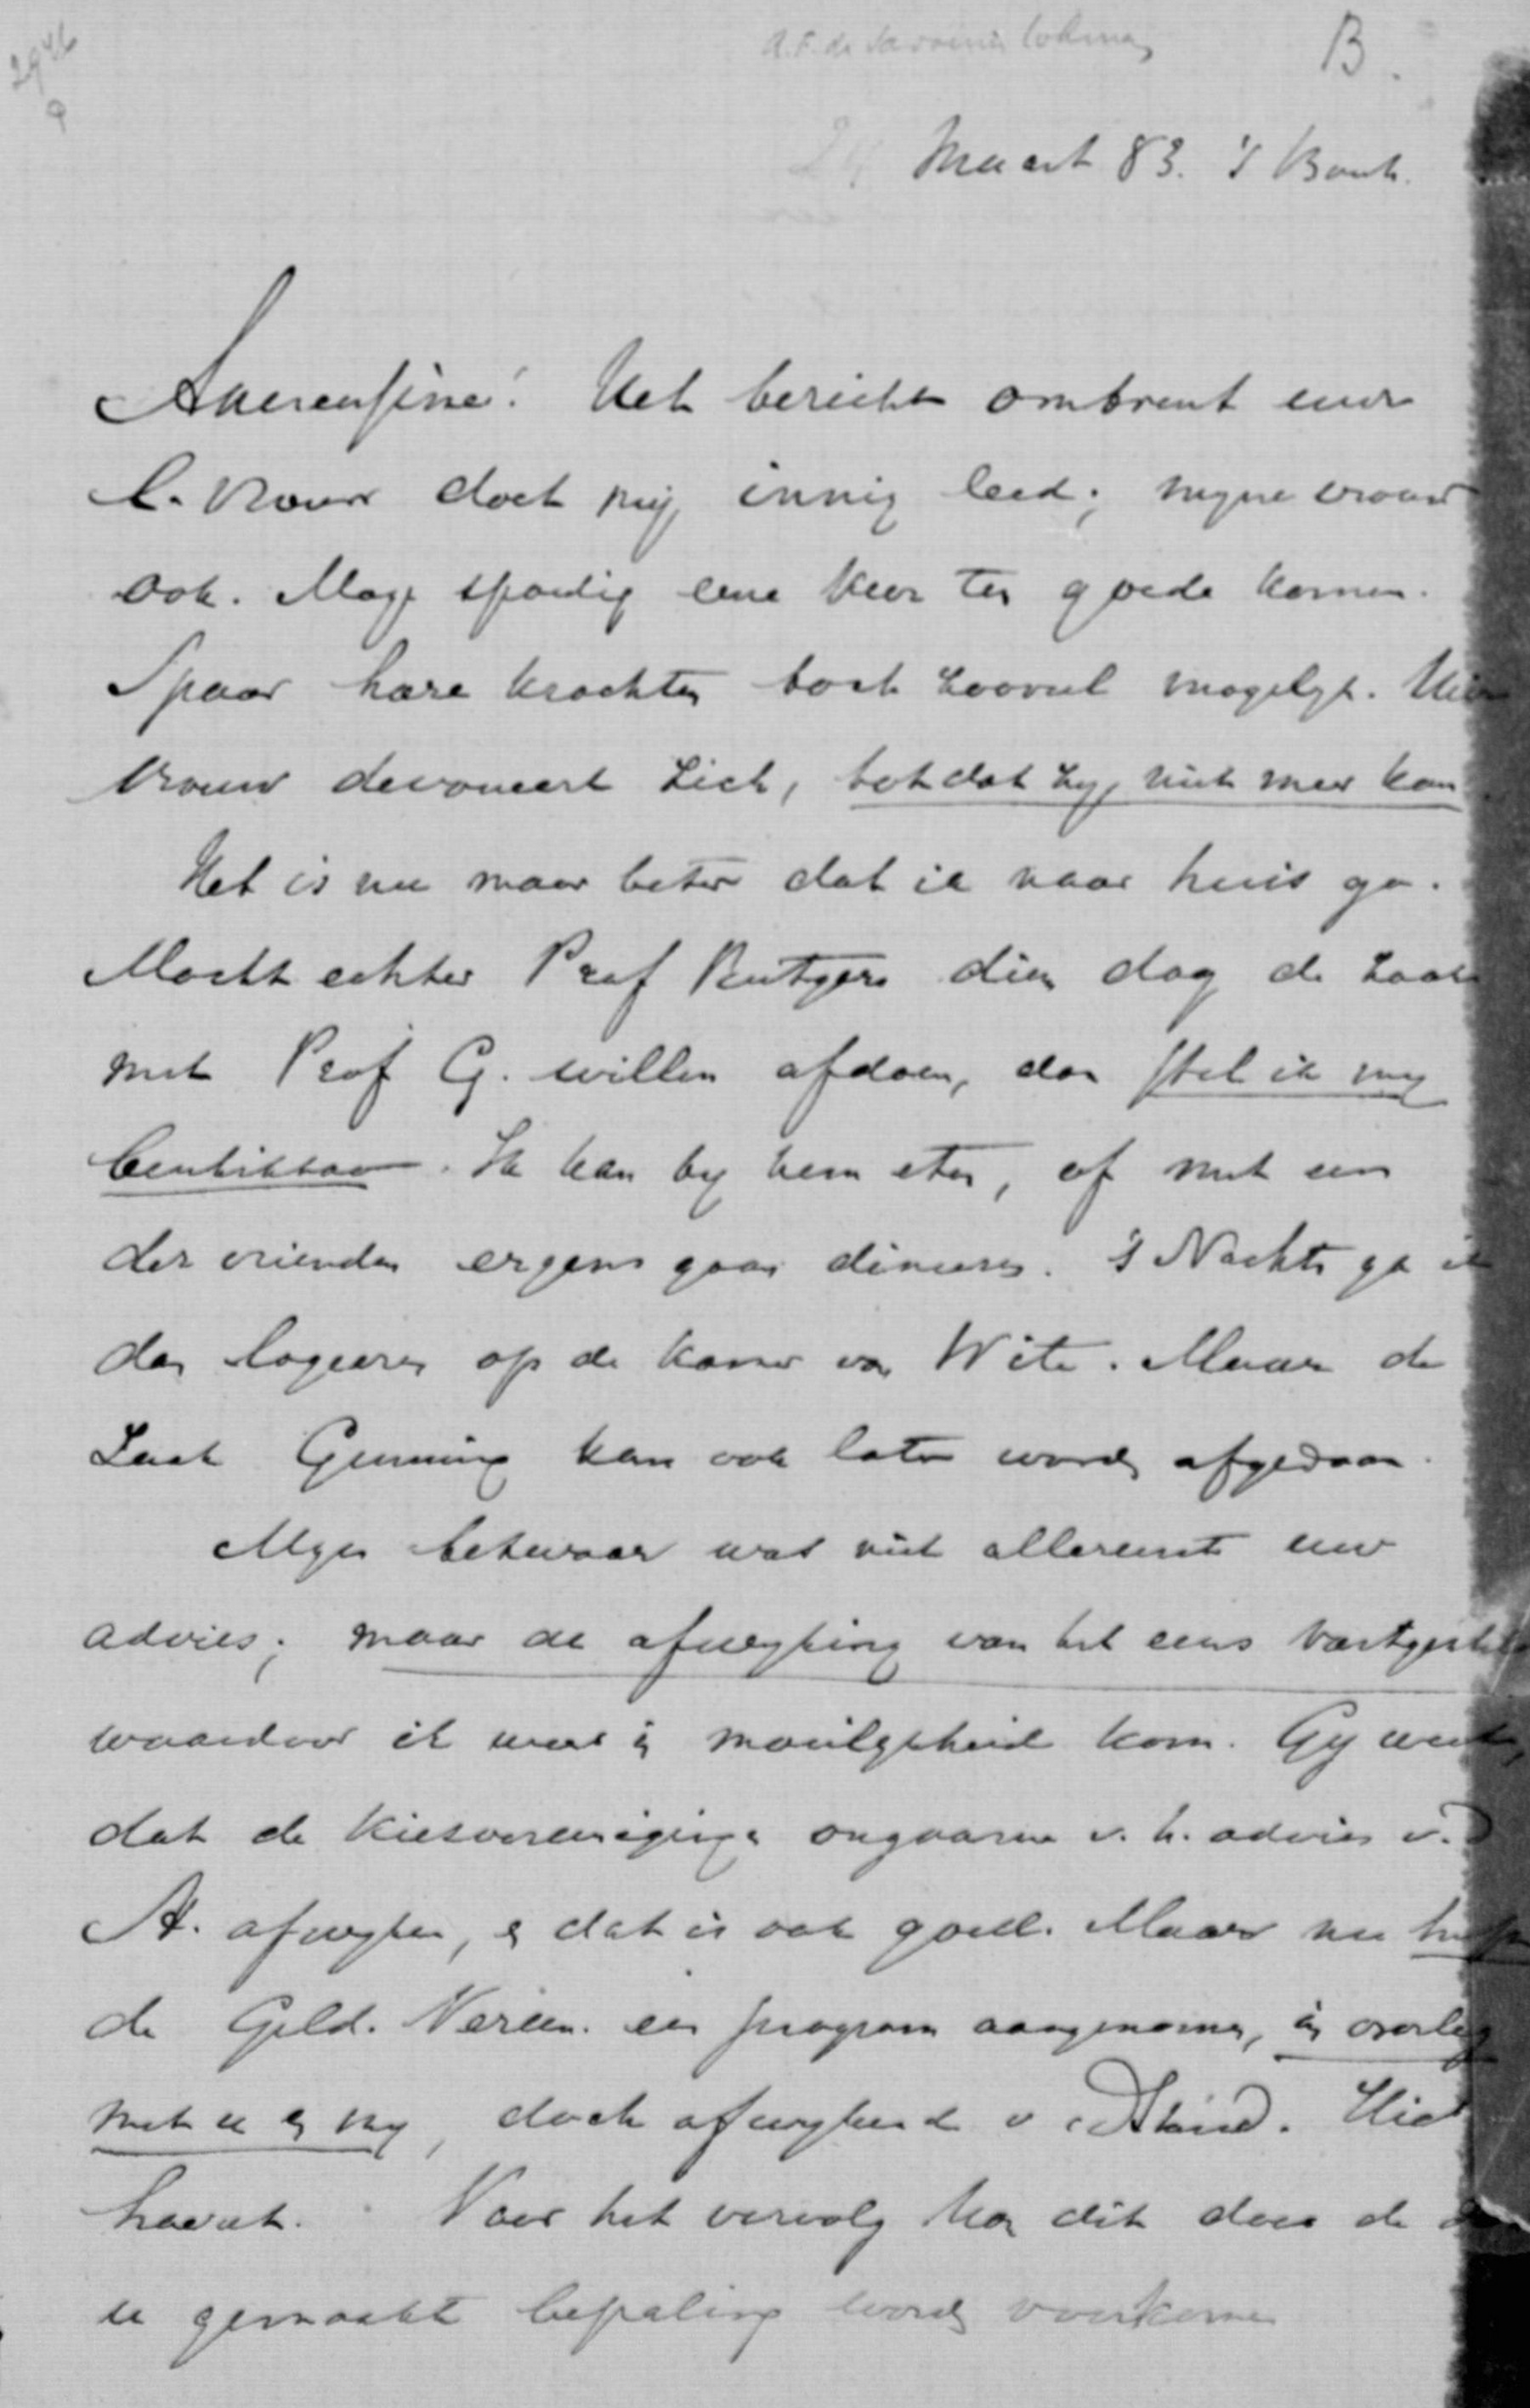 2946
a
A.F. de Savornin Lohman
B.
24 Maart 83. 's Bosch.
Amicissime! Het bericht omtrent uwe
l. vrouw doet mij innig leed; mijne vrouw
ook. Moge spoedig eene keer ten goede komen.
Spaar hare krachten toch zooveel mogelijk. Uw
vrouw devoueert zich, totdat zij niet meer kan
Het is nu maar beter dat ik naar huis ga.
Mocht echter Prof Rutgers dien dag de zaak
met Prof G. willen afdoen, dan stel ik mij
beschikbaar. Ik kan bij hem eten, of met een
der vrienden ergens gaan dineeren. 's Nachts ga ik
dan logeeren op de kamer van Wite. Maar de
Zaak Gunning kan ook later worden afgedaan.
Mijn bezwaar was niet allereerst uw
advies; maar de afwijking van het eens vastgestelde
waardoor ik weer in moeilijkheid kom. Gij weet,
dat de kiesvereenigingen ongaarne v. h. advies v. d
A. afwijken, en dat is ook goed. Maar nu heeft
de Geld. Vereen. een program aangenomen, in overleg
met u en mij, doch afwijkend v. Stand. Hier
Voor het vervolg kan dit door de
te gemaakte bepaling worden voorkomen